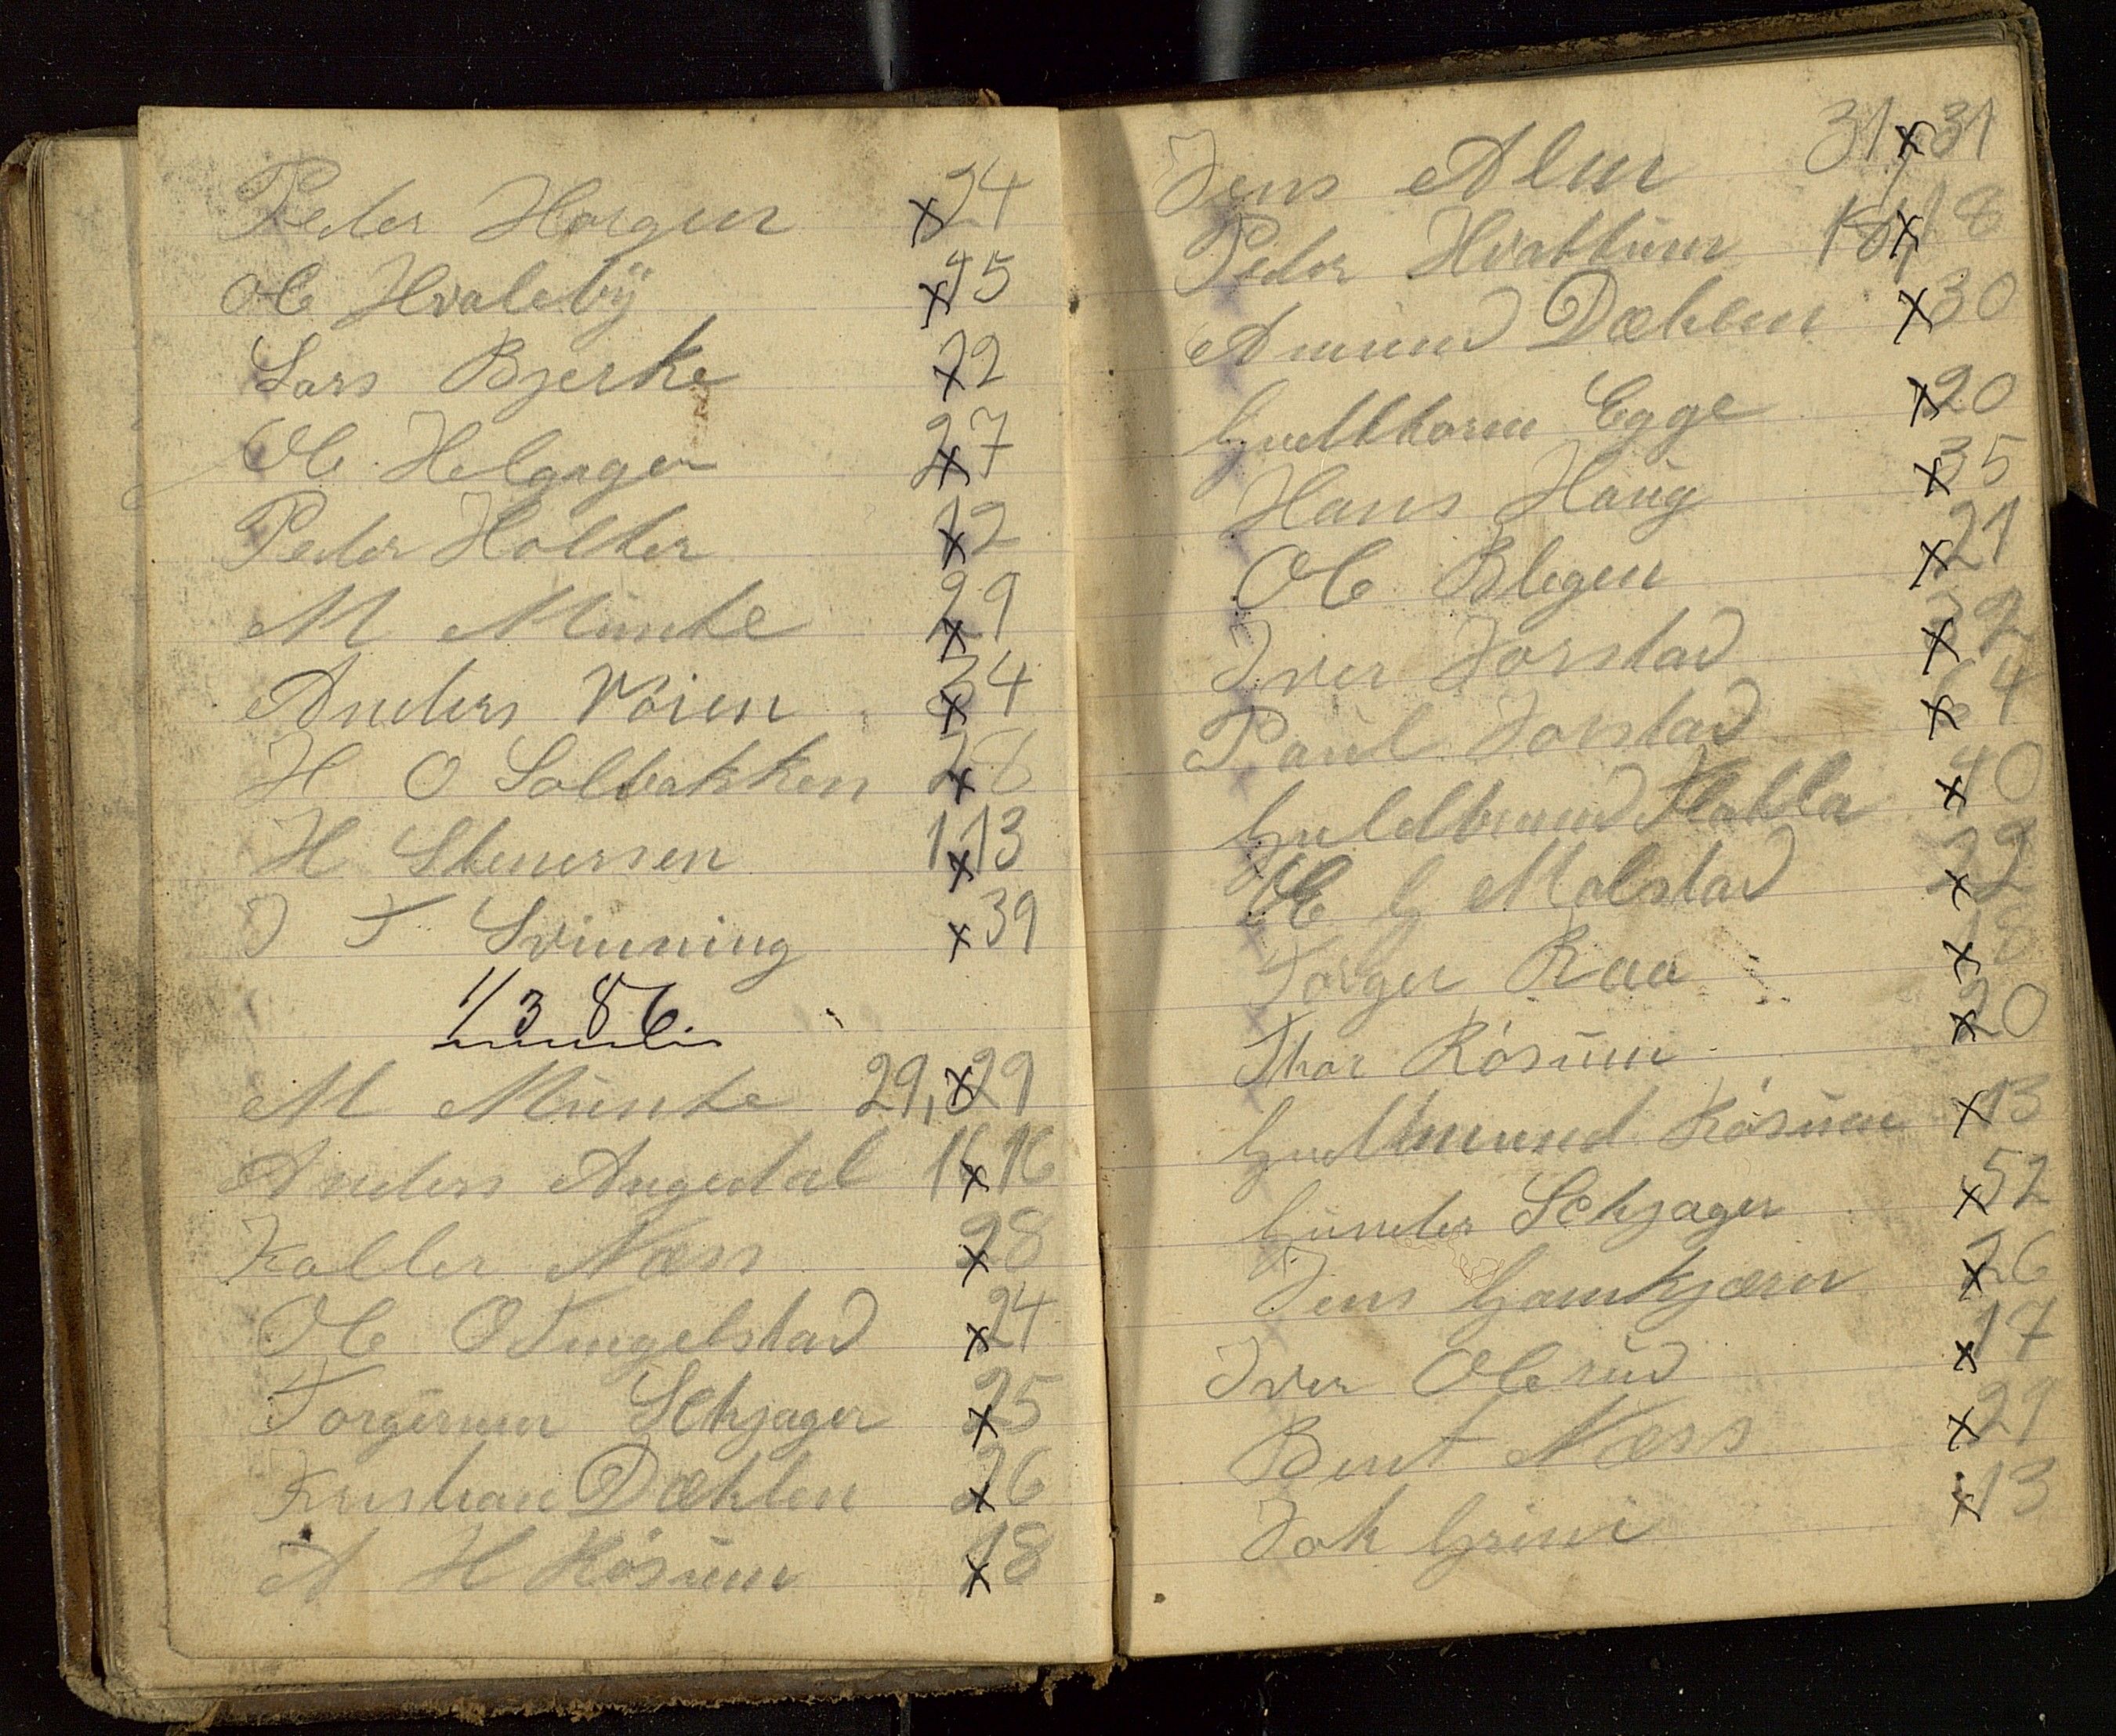 Peder Horgen x 24
Ole Hvaleby x 15
Lars Bjerke x 22
Ole Helgager x 27
Peder Holter x 12
M Munke x 29
Anders Vöien x 34
H O Solbakken x 26
H Stenersen 113 x
J T Svinning x 39
1/3 86.
M Munke 29, x 29
Anders Angedal 16 x 16
Kaller Næss x 28
Ole O Tingelstad x 24
Torgermer Schjager x 25
Kristian Dæhlen x 26
A H Kósum x 18
Jens Alm 31, x 31
Peder Hvattum 18, x 18
Amund Dæhlen x 30
Gudthorm Egge x 20
Hans Haug x 35
Ole Blegen x 21
Iver Jorstad x 32
Paul Jorstad x 64
Guldbrand Flatla x 40
Ole G Molstad x 22
Torger Raa x 18
Thor Rösum x 20
Gudmund Kósum x 13
Gunder Schjager x 52
Jens Gamkjærn x 26
Iver Olerud x 17
Bent Næss x 29
Joh Grini x 13